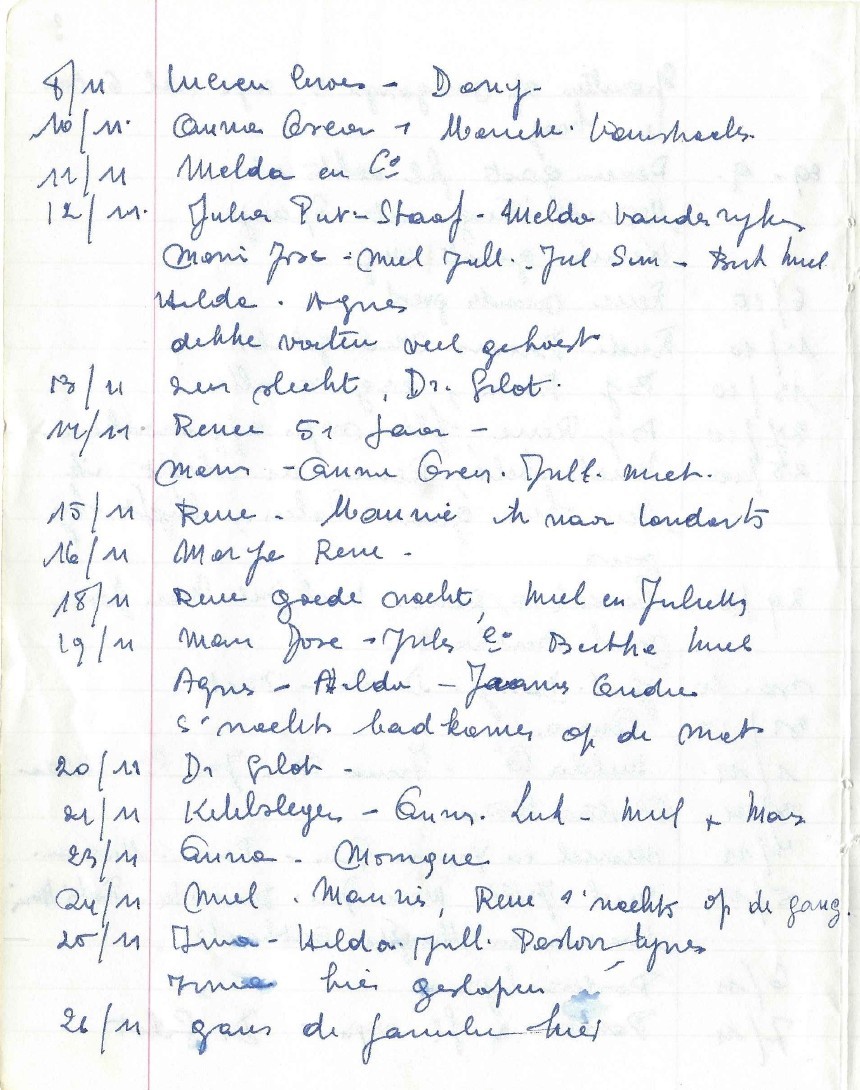 8/11 Lucien - Dany -
10/11. Anna Greta + Marieke.
11/11 Melda en Co
12/11. Julia Put - Staaf - Melda Vanderryke
Marie José - Miel Jull. - Jul Sim - Bert Miel
Hilda. Agnes
dikke voeten veel gehoest
13/11 zeer slecht, Dr. Gilot.
14/11. Renee 51 jaar -
Maur - Anna Jull. Miel.
15/11 Rene. Maurice ik naar
16/11 Rene -
18/11 Rene goede nacht, Miel en Juliette
19/11 Marie José - Jules e. Berthe Miel
Agnes - Hilda - Jeannes Andre
s'nachts badkamer op de mat
20/11 Dr Gilot -
21/11 - Anna. Luk - Miel +
23/11 Anna - Monique
24/11 Miel. Mauris, Rene s'nachts op de gang.
25/11 Irma - Hilda. Jull. Pastoor
Irma hier geslapen
26/11 gans de familie hier